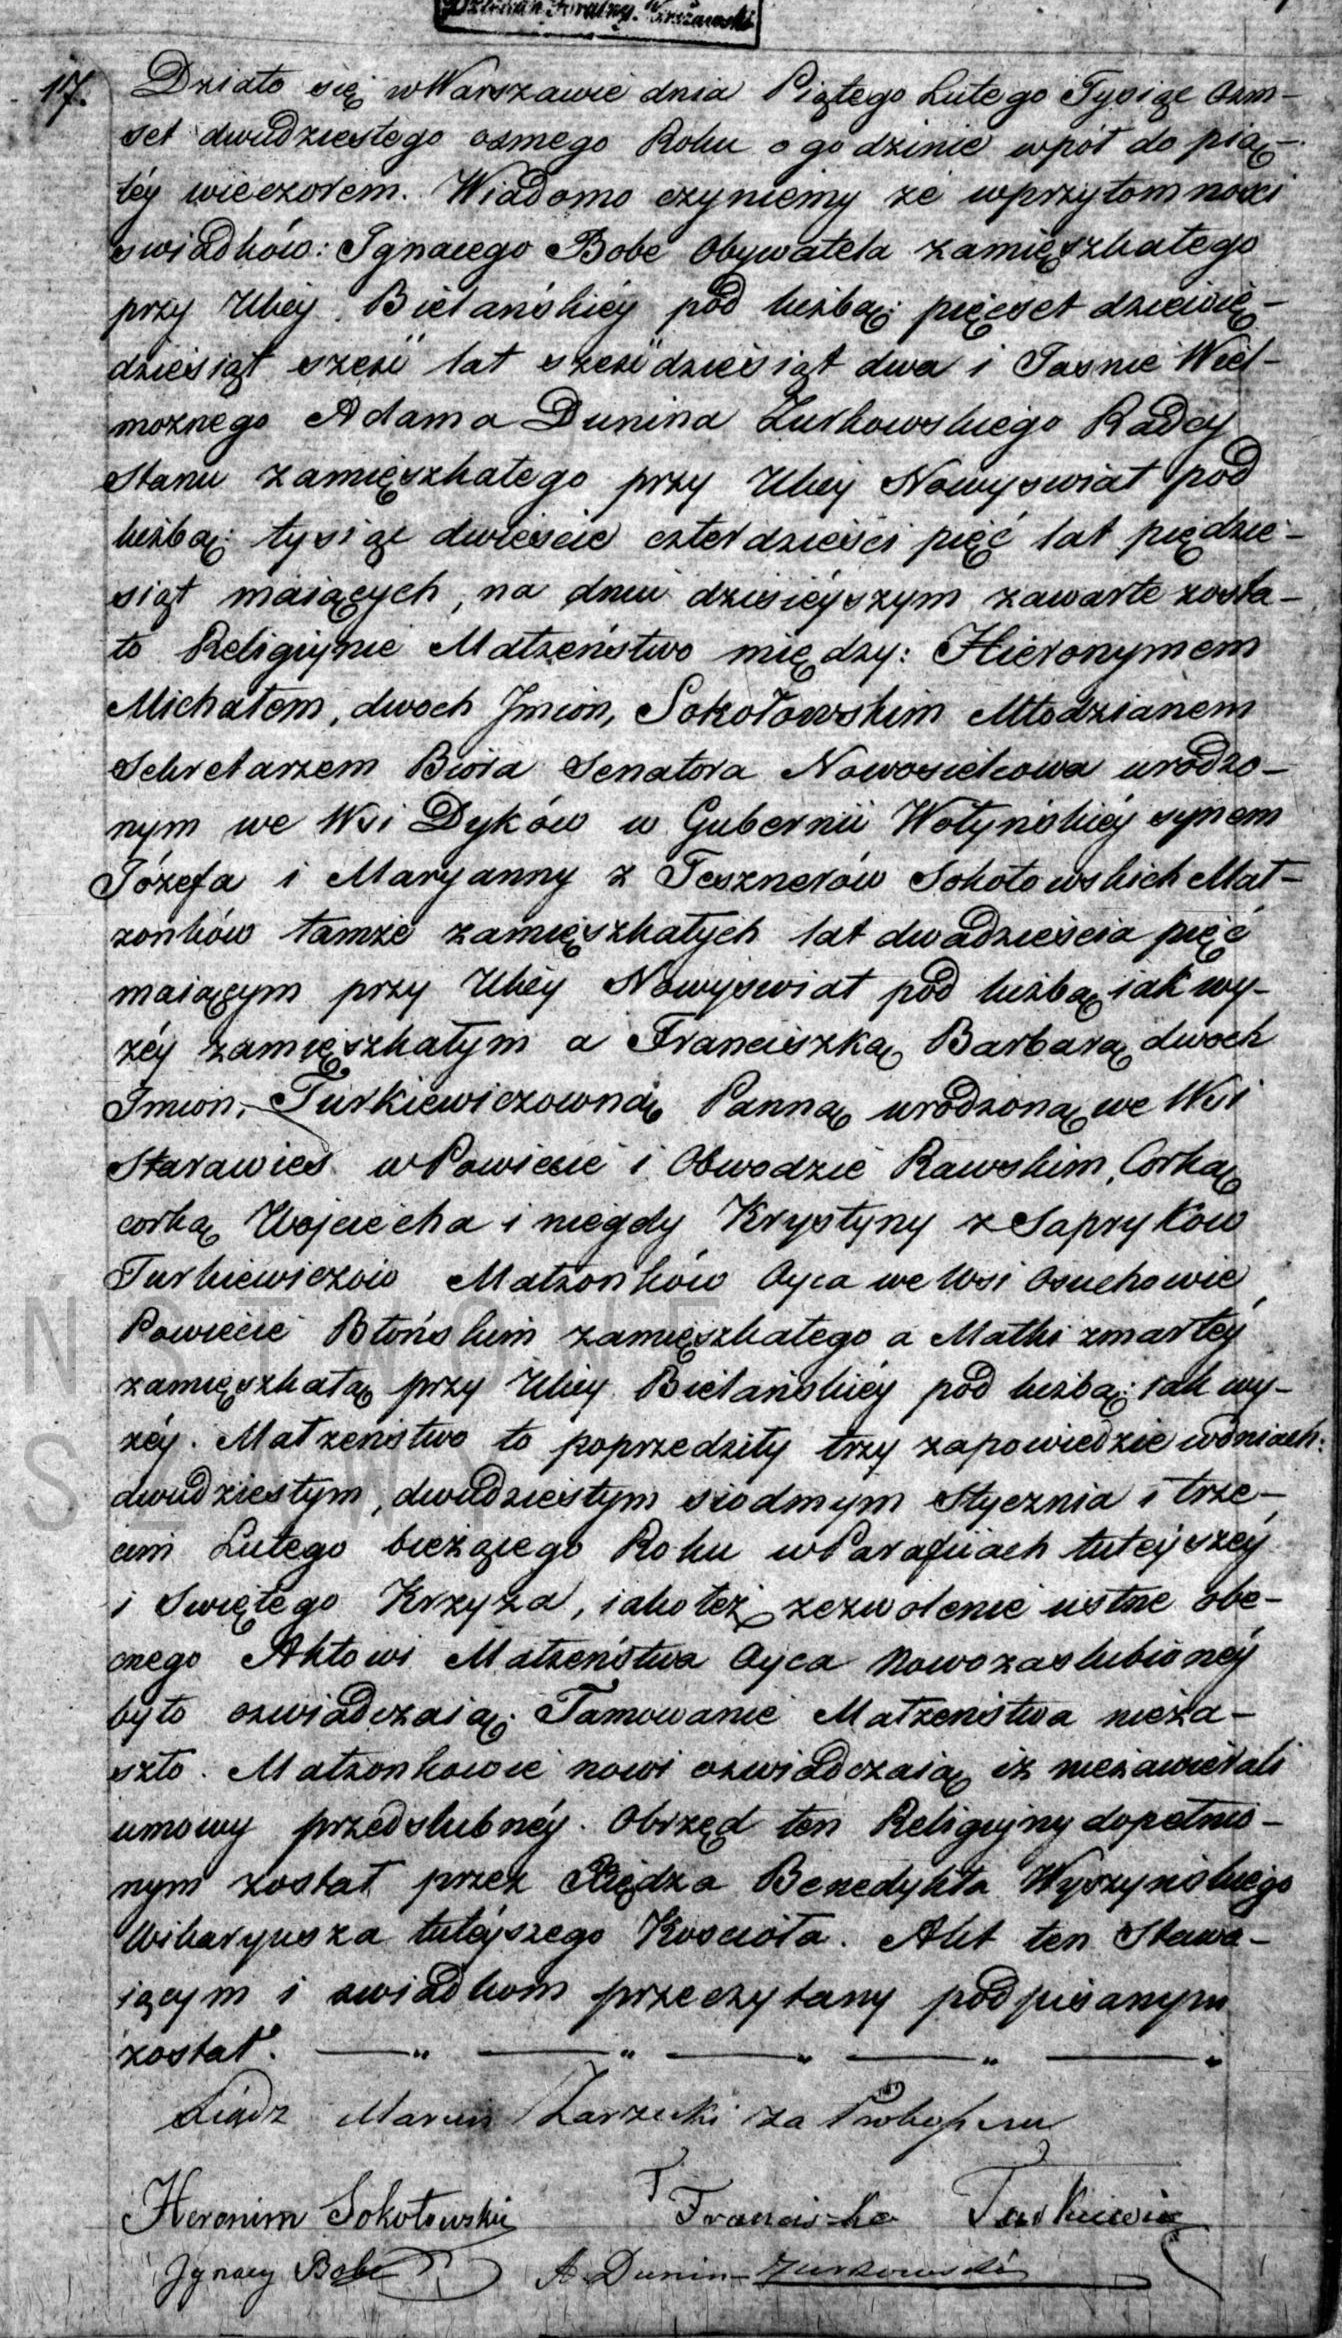 17. Działo się w Warszawie dnia Piątego Lutego Tysiąc Osm-
set dwudziestego osmego Roku o godzinie wpół do pią-
téy wieczorem. Wiadomo czyniemy że wprzytomnosci
swiadków: Ignacego Bobe Obywatela zamięszkałego
przy Ulicy Bielańskiéy pod liczbą: pięćset dziewię-
dziesiąt sześć lat sześćdziesiąt dwa i Jasnie Wiel-
możnego Adama Dunina Żurkowskiego Radcy
Stanu zamięszkałego przy Ulicy Nowyswiat pod
liczbą: tysiąc dwieście czterdzieści pięć lat piędzie-
siąt maiących, na dniu dzisieyszym zawarte zosta-
ło Religijnie Małżeństwo między: Hieronymem
Michałem, dwoch Jmion, Sokołowskim Młodzianem
Sekretarzem Biora Senatora Nowosielcowa urodzo-
nym we Wsi Dyków w Gubernii Wołyńskiéy synem
Józefa i Maryanny z Tesznerów Sokołowskich Mał-
żonków tamże zamięszkałych lat dwadzieścia pięć
maiącym przy Ulicy Nowyswiat pod liczbą iak wy-
żéy zamięszkałym a Franciszką Barbarą dwoch
Imion, Turkiewiczowną Panną urodzoną we Wsi
Starawies w Powiecie i Obwodzie Rawskim, Corką
corką Wojciecha i niegdy Krystyny z Saprykow
Turkiewiczów Małżonków Oyca we Wsi Osuchowie
Powiecie Błońskim zamięszkałego a Matki zmarłéy
zamięszkałą przy Ulicy Bielańskiéy pod liczbą: iak wy-
żéy. Małżeństwo to poprzedziły trzy zapowiedzie wdniach:
dwudziestym, dwudziestym siodmym Stycznia i trze-
cim Lutego bieżącego Roku w Parafiiach tutéyszéy
i Swiętego Krzyża, iakoteż zezwolenie ustne obe-
cnego Aktowi Małżeństwa Oyca Nowozaslubionéy
było oswiadczaią: Tamowanie Małżeństwa nieza-
szło. Małżonkowie nowi oswiadczaią iż niezawierali
umowy przedslubnéy. Obrzęd ten Religijny dopełnio-
nym został przez Xiędza Benedykta Wyszyńskiego
Wikaryusza tutéyszego Kościoła. Akt ten Stawa-
iącym i swiadkom przeczytany podpisanym
został.
Xiądz Marcin Zarzecki za Proboszcza
Heronim Sokołowski Franciszka Turkiewicz
Jgnacy Bobe A. Dunin-Żurkowski